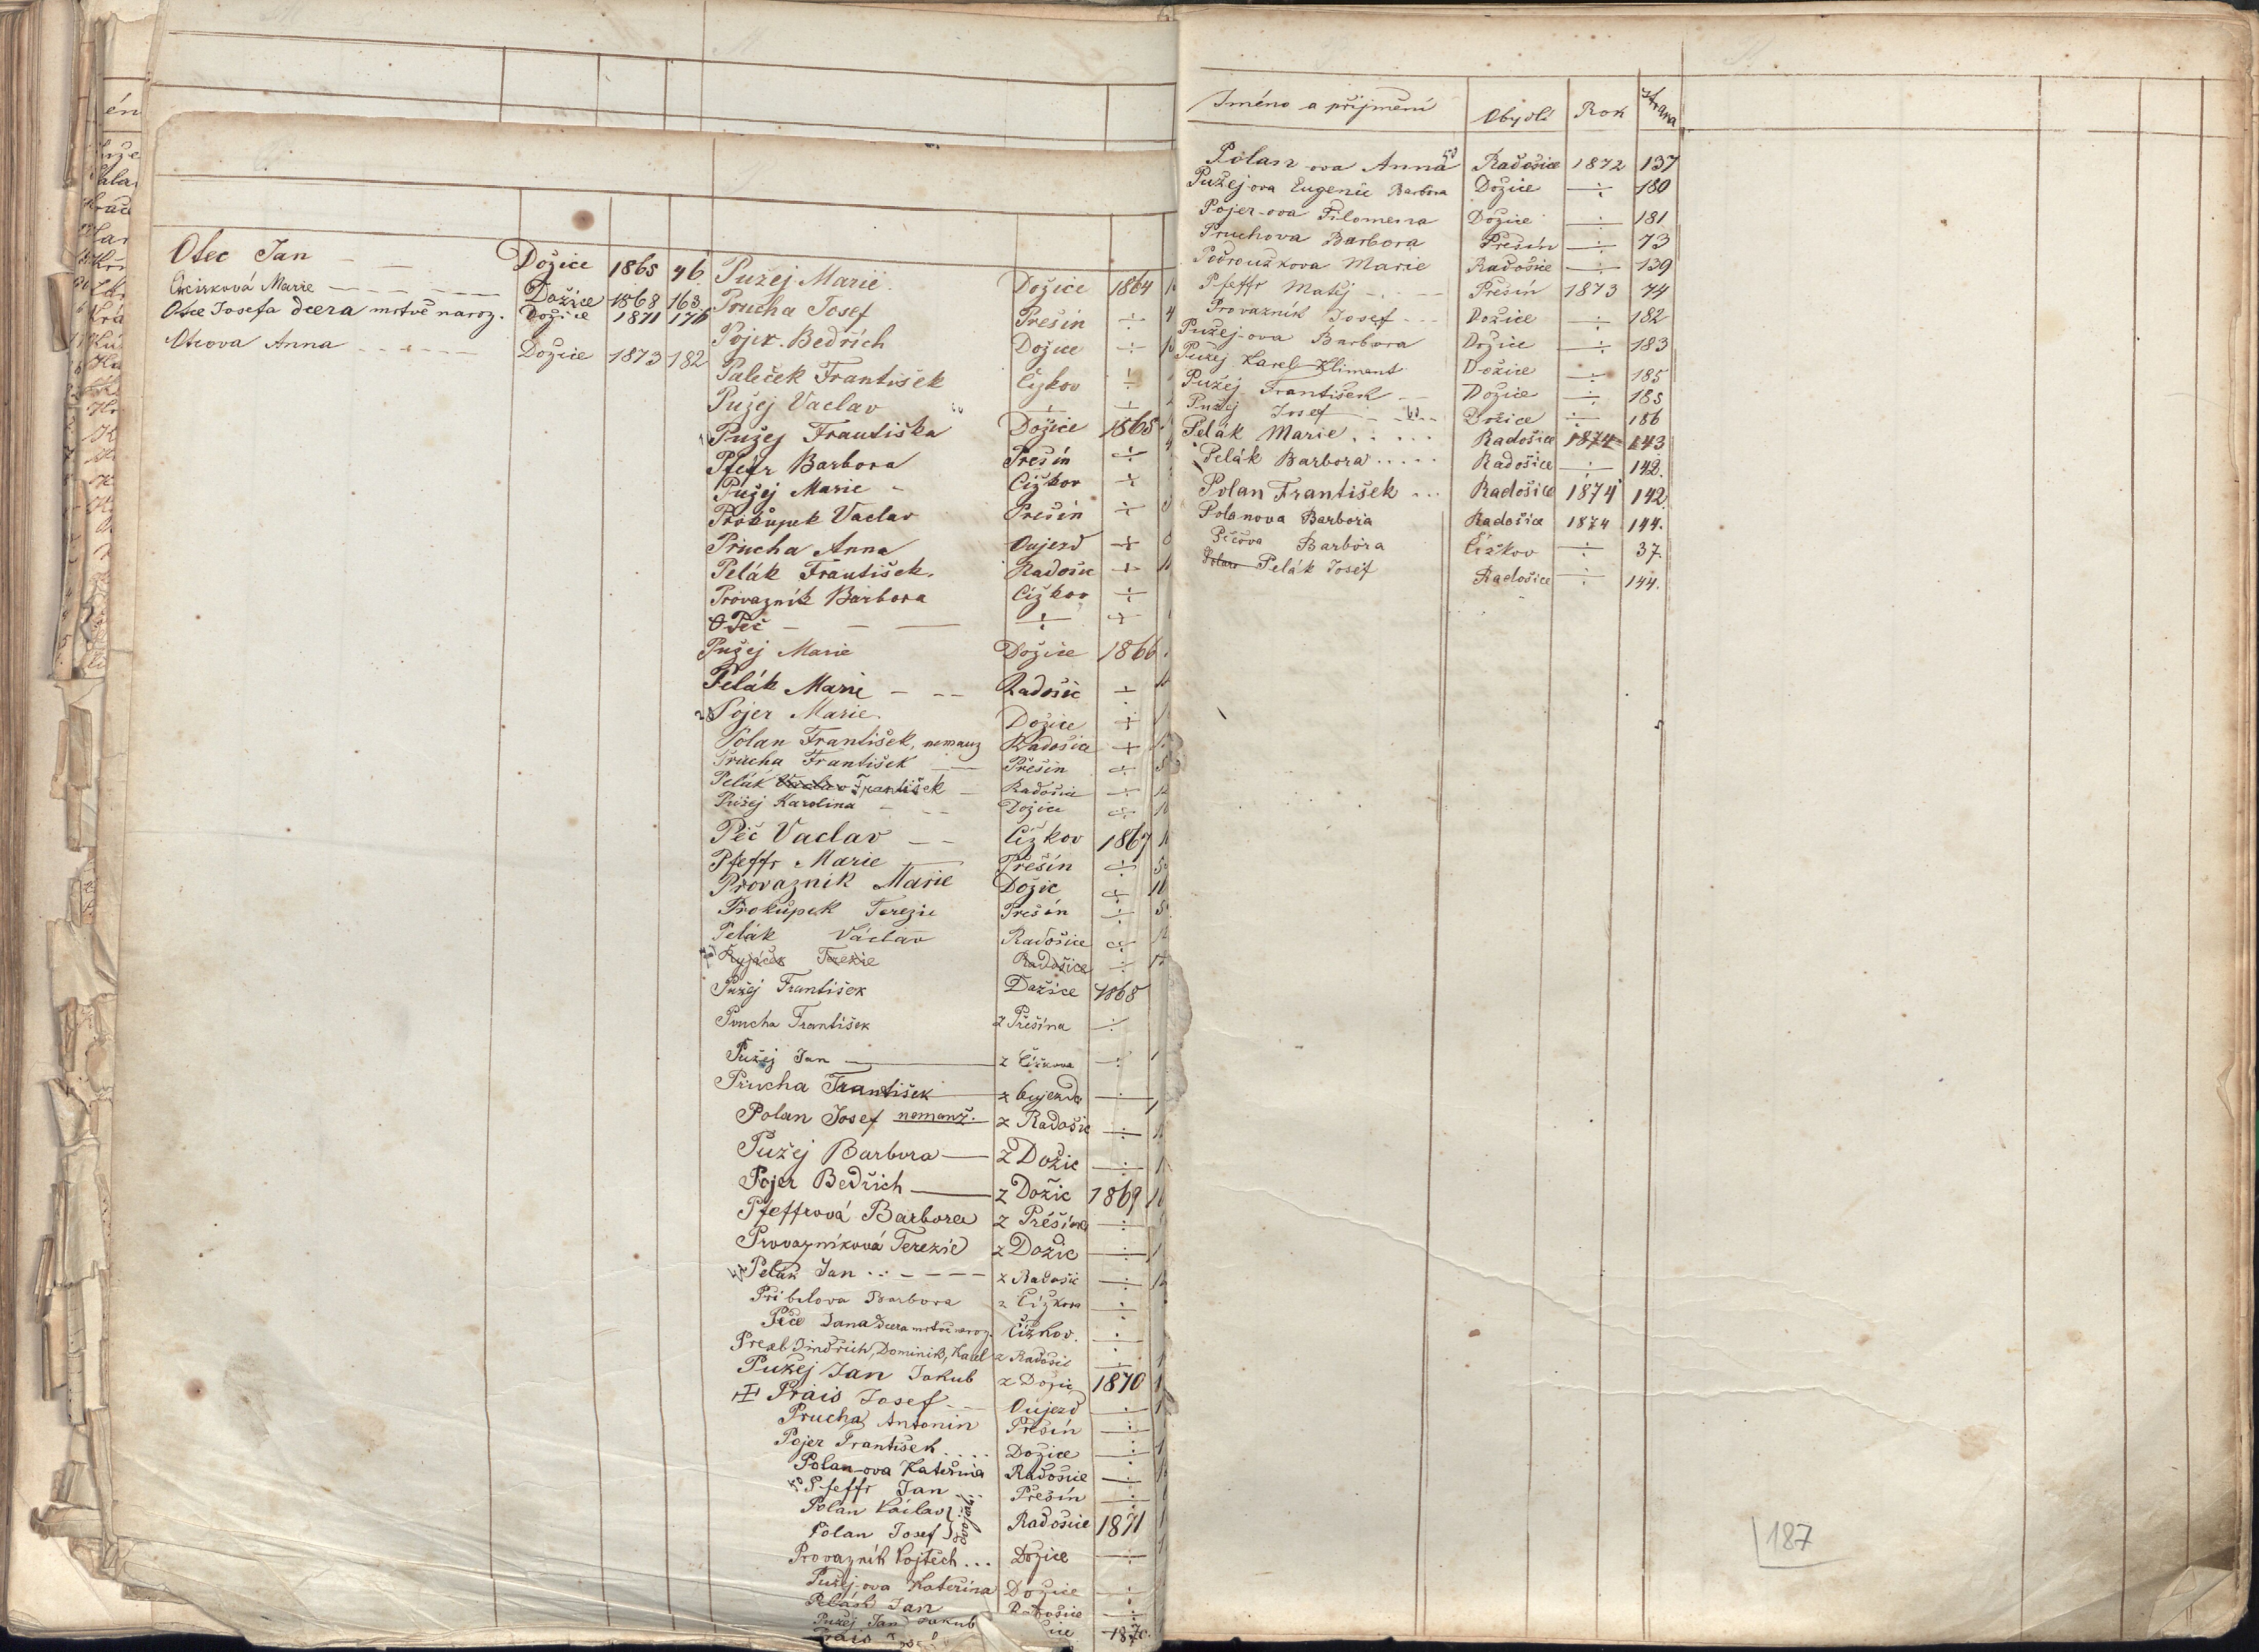 Otec Jan — — Dožice 1865 46
Marie — — — Dožice 1868 163
Otec Josefa dcera mrtvě naroz. Dožice 1871 176
Otcova Anna — — — Dožice 1873 182
Pužej Marie Dožice 1864
Prucha Josef Prešín ÷
Pojer Bedřich Dožice ÷
Paleček František Čížkov ÷
Pužej Vaclav ÷ ÷
Pužej Františka Dožice 1865
Pfefr Barbora Prešín ÷
Pužej Marie Čížkov ÷
Prokupek Vaclav Prešín ÷
Prucha Anna Oujezd ÷
Pelák František. Radošic ÷
Provazník Barbora Čížkov ÷
Peč — — — ÷ ÷
Pužej Marie Dožice 1866
Pelák Marie — — Radošic ÷
Pojer Marie. Dožice ÷
Polan František, nemanz Radošice ÷
Prucha František Přešín ÷
Pelák Vaclav František — Radošic ÷
Pužej Karolina Dožice ÷
Péč Vaclav — — Čížkov 1867
Pfeffr Marie Přešín ÷
Provaznik Marie Dožic ÷
Prokůpek Terezie Prešín ÷
Pelák Václav Radošice ÷
Terezie Radošice ÷
Pužej František Dožice 1868
Prucha František z Přešína ÷
Pužej Jan — z Čížkova ÷
Průcha František z Oujezda ÷
Polan Josef nemanž. z Radošic ÷
Pužej Barbora — z Dožic ÷
Pojer Bedřich — z Dožic 1869
Pfeffrová Barbora z Přešína ÷
Provazníková Terezie z Dožic ÷
Pelák Jan z Radošic ÷
Pribilova Barbora z Čížkova ÷
Péče Jana dcera mrtvě naroz. Čížkov. ÷
Jindřich, Dominik, Karel z Radošic ÷
Pužej Jan Jakub z Dožic 1870
Prais Josef — Oujezd ÷
Prucha Antonin Přešín ÷
Pojer František .... Dožice ÷
Polan-ova Kateřina Radošice ÷
Pfeffr Jan Přešín ÷
Polan Václav } dvojčata
Polan Josef } Radošice 1871
Provazník Vojtěch ... Dožice ÷
Pužej-ova Kateřina Dožice ÷
Pelák Jan Radošice ÷
Pužej Jan Jakub 1870.
Prais
Jméno a příjmení Obydlí Rok strana
Polan-ova Anna Radošice 1872 137
Pužej-ova Eugenie Barbora Dožice ÷ 180
Pojer-ova Filomena Dožice ÷ 181
Pruchova Barbora Přešín ÷ 73
Podrouzkova Marie Radošice ÷ 139
Pfeffr Matěj — Přešín 1873 74
Provazník Josef — Dožice ÷ 182
Pužej-ova Barbora Dožice ÷ 183
Pužej Karel Kliment Dožice ÷ 185
Pužej František — Dožice ÷ 185
Pužej Josef — Dožice ÷ 186
Pelák Marie ..... Radošice 1874 143
Pelák Barbora ..... Radošice ÷ 142.
Polan František ... Radošice 1874 142
Polanova Barbora Radošice 1874 144.
Péčova Barbora Čížkov ÷ 37.
Polan Pelák Josef Radošice ÷ 144.
187